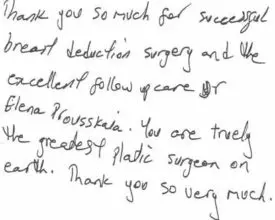 Thank you so much for successful
breast deduction surgery and the
excellent follow up care Dr
Elena Prousskaia. You are truely
the greadest Plastic surgeon on
earth. Thank you so very much.